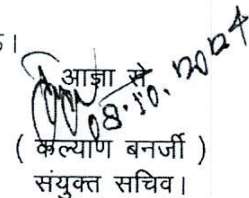 ।
आज्ञा से
08.10.2024
( कल्याण बनर्जी )
संयुक्त सचिव।